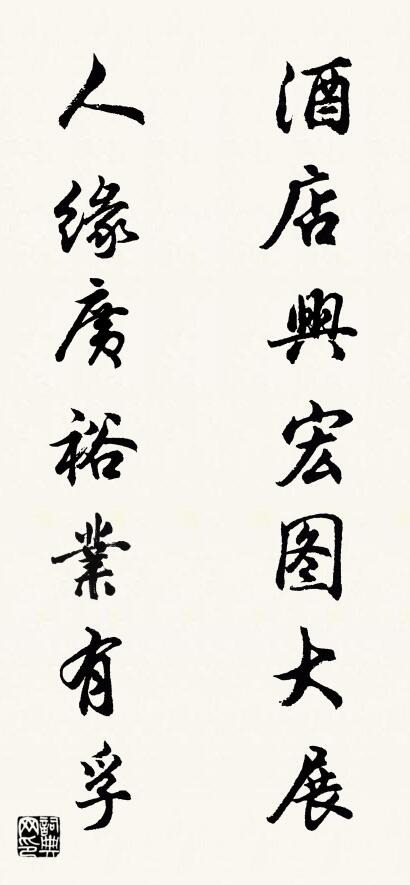 酒店興宏图大展
人缘廣裕業有孚
詞典网印